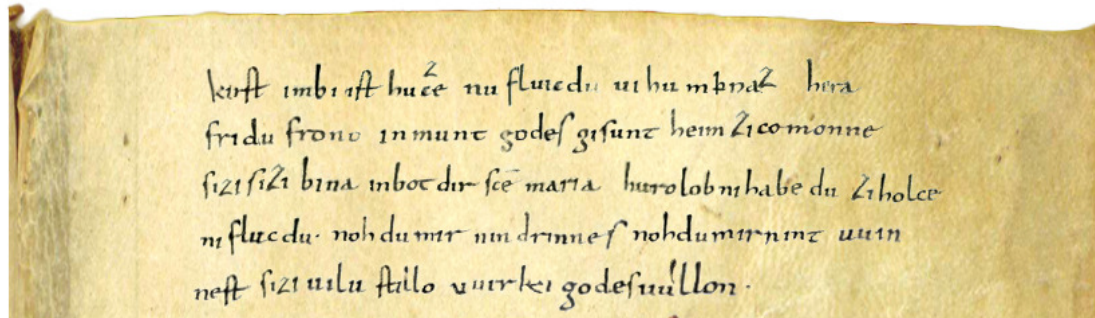 kirst imbi ist hucze nu fluic du uihu minaz hera
fridu frono in munt godes gisunt heim zi comonne
sizi sizi bina inbot dir sce maria hurolob ni habe du zi holce
ni fluc du · noh du mir nin drinnes noh du mir nint uuin
nest sizi uilu stillo uuirki godes uuillon ·